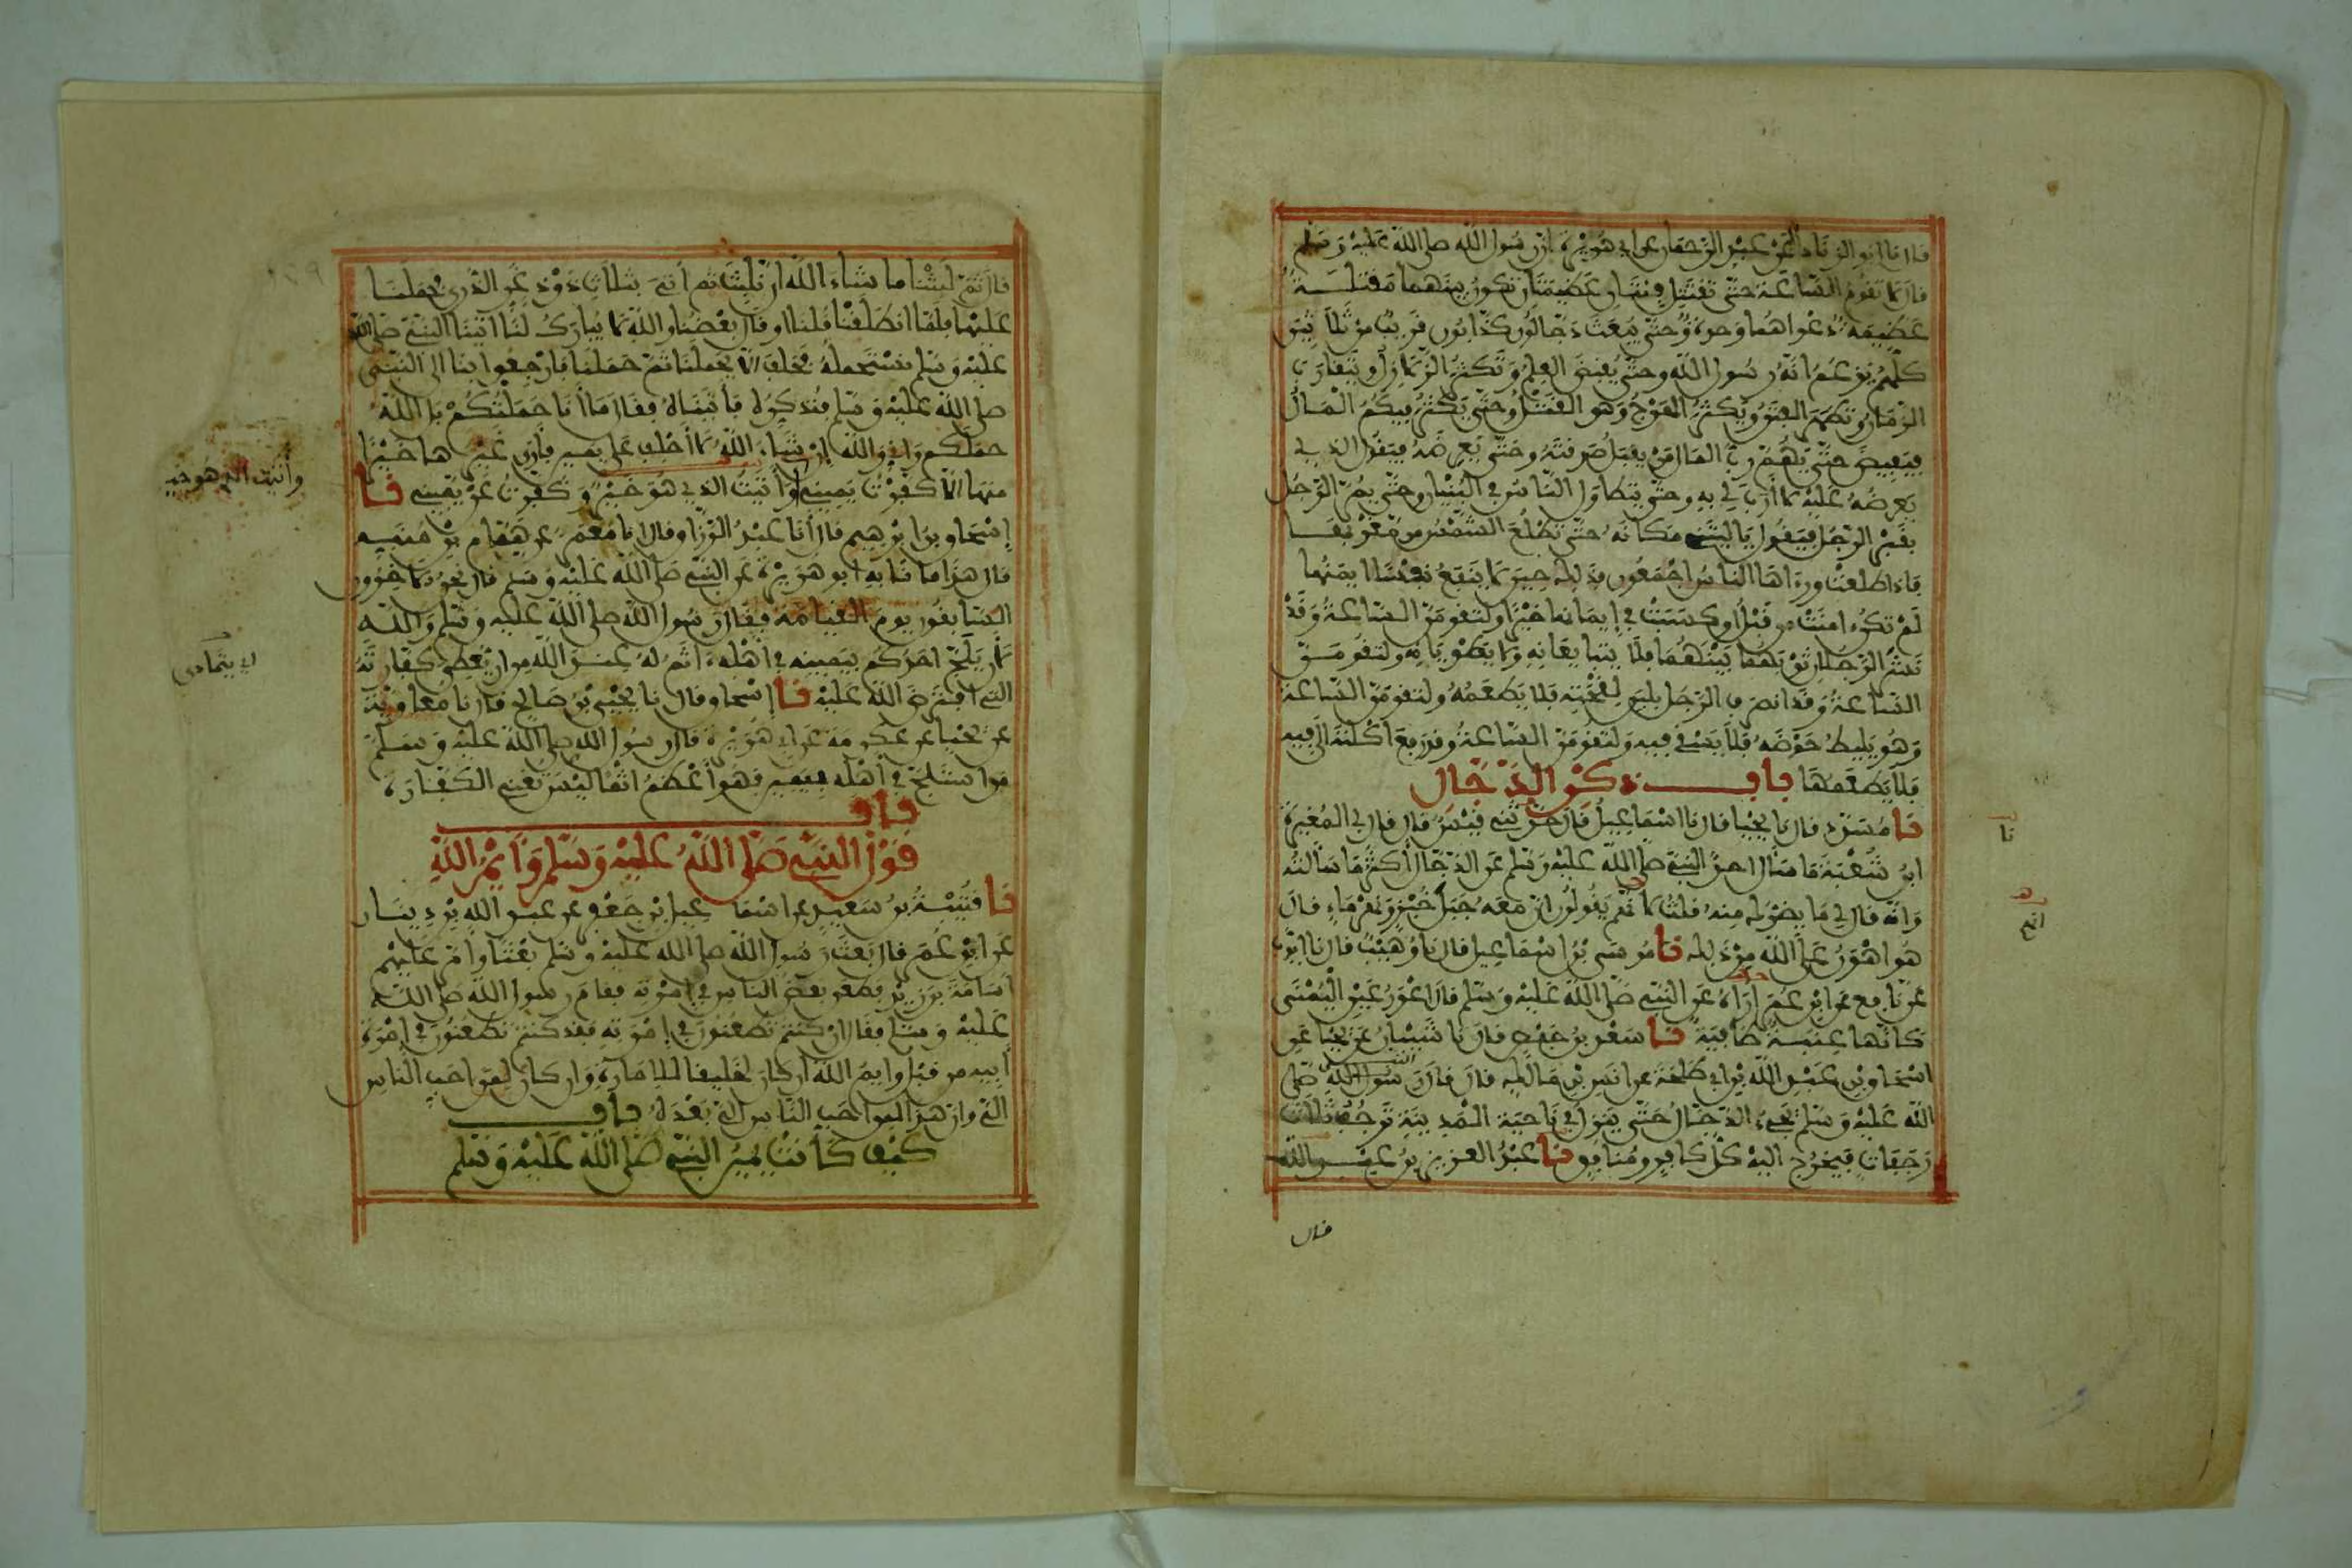 قال نا ابو الزناد عن عبد الرحمان عن ابي هريرة ان رسول الله صلى الله عليه وسلم
قال لا تقوم الساعة حتى تقتتل فئتان عظيمتان تكون بينهما مقتلة
عظيمة دعواهما وحدة وحتى يبعث دجالون كذابون قريب من ثلاثين
كلهم يزعم انه رسول الله وحتى يقبض العلم وتكثر الزلازل ويتقارب
الزمان وتظهر الفتن ويكثر الهرج وهو القتل وحتى يكثر فيكم المال
فيفيض حتى يهم رب المال من يقبل صدقته وحتى يعرضه فيقول الذي
يعرضه عليه لا ارب لي به وحتى يتطاول الناس في البنيان وحتى يمر الرجل
بقبر الرجل فيقول يا ليتني مكانه حتى تطلع الشمس من مغربها
فاذا طلعت ورءاها الناس اجمعون فذلك حين لا ينفع نفسا ايمنها
لم تكن امنت من قبل او كسبت في إيمانها خيرا ولتقومن الساعة وقد
نشر الرجلان ثوبهما بينهما فلا يتبايعانه ولا يطويانه ولتقومن
الساعة وقد انصرف الرجل بلبن لقحته فلا يطعمه ولتقومن الساعة
وهو يليط حوضه فلا يسقي فيه ولتقومن الساعة وقد رفع اكلته الى فيه
فلا يطعمها باب ذكر الدجال
نا مسدد قال نا يحيا قال نا اسماعيل قال حدثني قيس قال قال لي المغيرة
ابن شعبة ما سأل احد النبي صلى الله عليه وسلم عن الدجال اكثر ما سألته
وانه قال لي ما يضرك منه قلت لانهم يقولون ان معه جبل خبز ونهر ماء قال
هو اهون على الله من ذلك نا موسى بن اسماعيل قال نا وهيب قال نا ايوب
عن نافع عن ابن عمر اراه عن النبي صلى الله عليه وسلم قال اعور عين اليمنى
كانها عنبة طافية نا سعد بن حفص قال نا شيبان عن يحيا عن
اسحاق بن عبد الله بن ابي طلحة عن انس بن مالك قال قال رسول الله صلى
الله عليه وسلم يجيء الدجال حتى ينزل في ناحية المدينة ترجف ثلاث
رجفات فيخرج اليه كل كافر ومنافق نا عبد العزيز بن عبد الله
قال
نا
قال ثم لبثنا ما شاء الله ان نلبث ثم أتي بثلاث ذود غر الذرى فحملنا
عليها فلما انطلقنا قلنا او قال بعضنا والله لا يبارك لنا اتينا النبي صلى الله
عليه وسلم نستحمله فحلف الا يحملنا ثم حملنا فارجعوا بنا الى النبي
صلى الله عليه وسلم فنذكره فأتيناه فقال ما أنا حملتكم بل الله
حملكم واني والله إن شاء الله لا أحلف على يمين فأرى غيرها خيرا
منها الا كفرت يميني وأتيت الذي هو خير وكفرت عن يميني نا
إسحاق بن ابرهيم قال أنا عبد الرزاق قال انا معمر عن همام بن منبه
قال هذا ما نا به ابو هريرة عن النبي صلى الله عليه وسلم قال نحن الاخرون
السابقون يوم القيامة فقال رسول الله صلى الله عليه وسلم والله
لان يلج احدكم بيمينه في اهله اثم له عند الله من ان يعطي كفارته
التي افترض الله عليه نا إسحاق قال نا يحيى بن صالح قال نا معاوية
عن يحيا عن عكرمة عن ابي هريرة قال رسول الله صلى الله عليه وسلم
من استلج في أهله بيمين فهو أعظم اثما ليس تغني الكفارة
باب
قول النبي صلى الله عليه وسلم وايم الله
نا قتيبة بن سعيد عن اسماعيل بن جعفر عن عبد الله بن دينار
عن ابن عمر قال بعث رسول الله صلى الله عليه وسلم بعثا وأمر عليهم
أسامة بن زيد فطعن بعض الناس في إمرته فقام رسول الله صلى الله
عليه وسلم فقال ان كنتم تطعنون في إمرته فقد كنتم تطعنون في إمرة
أبيه من قبل وايم الله ان كان لخليقا للامارة وان كان لمن احب الناس
الي وان هذا لمن احب الناس الي بعده باب
كيف كانت يمين النبي صلى الله عليه وسلم
وأتيت الذي هو خير
اي يتمادى